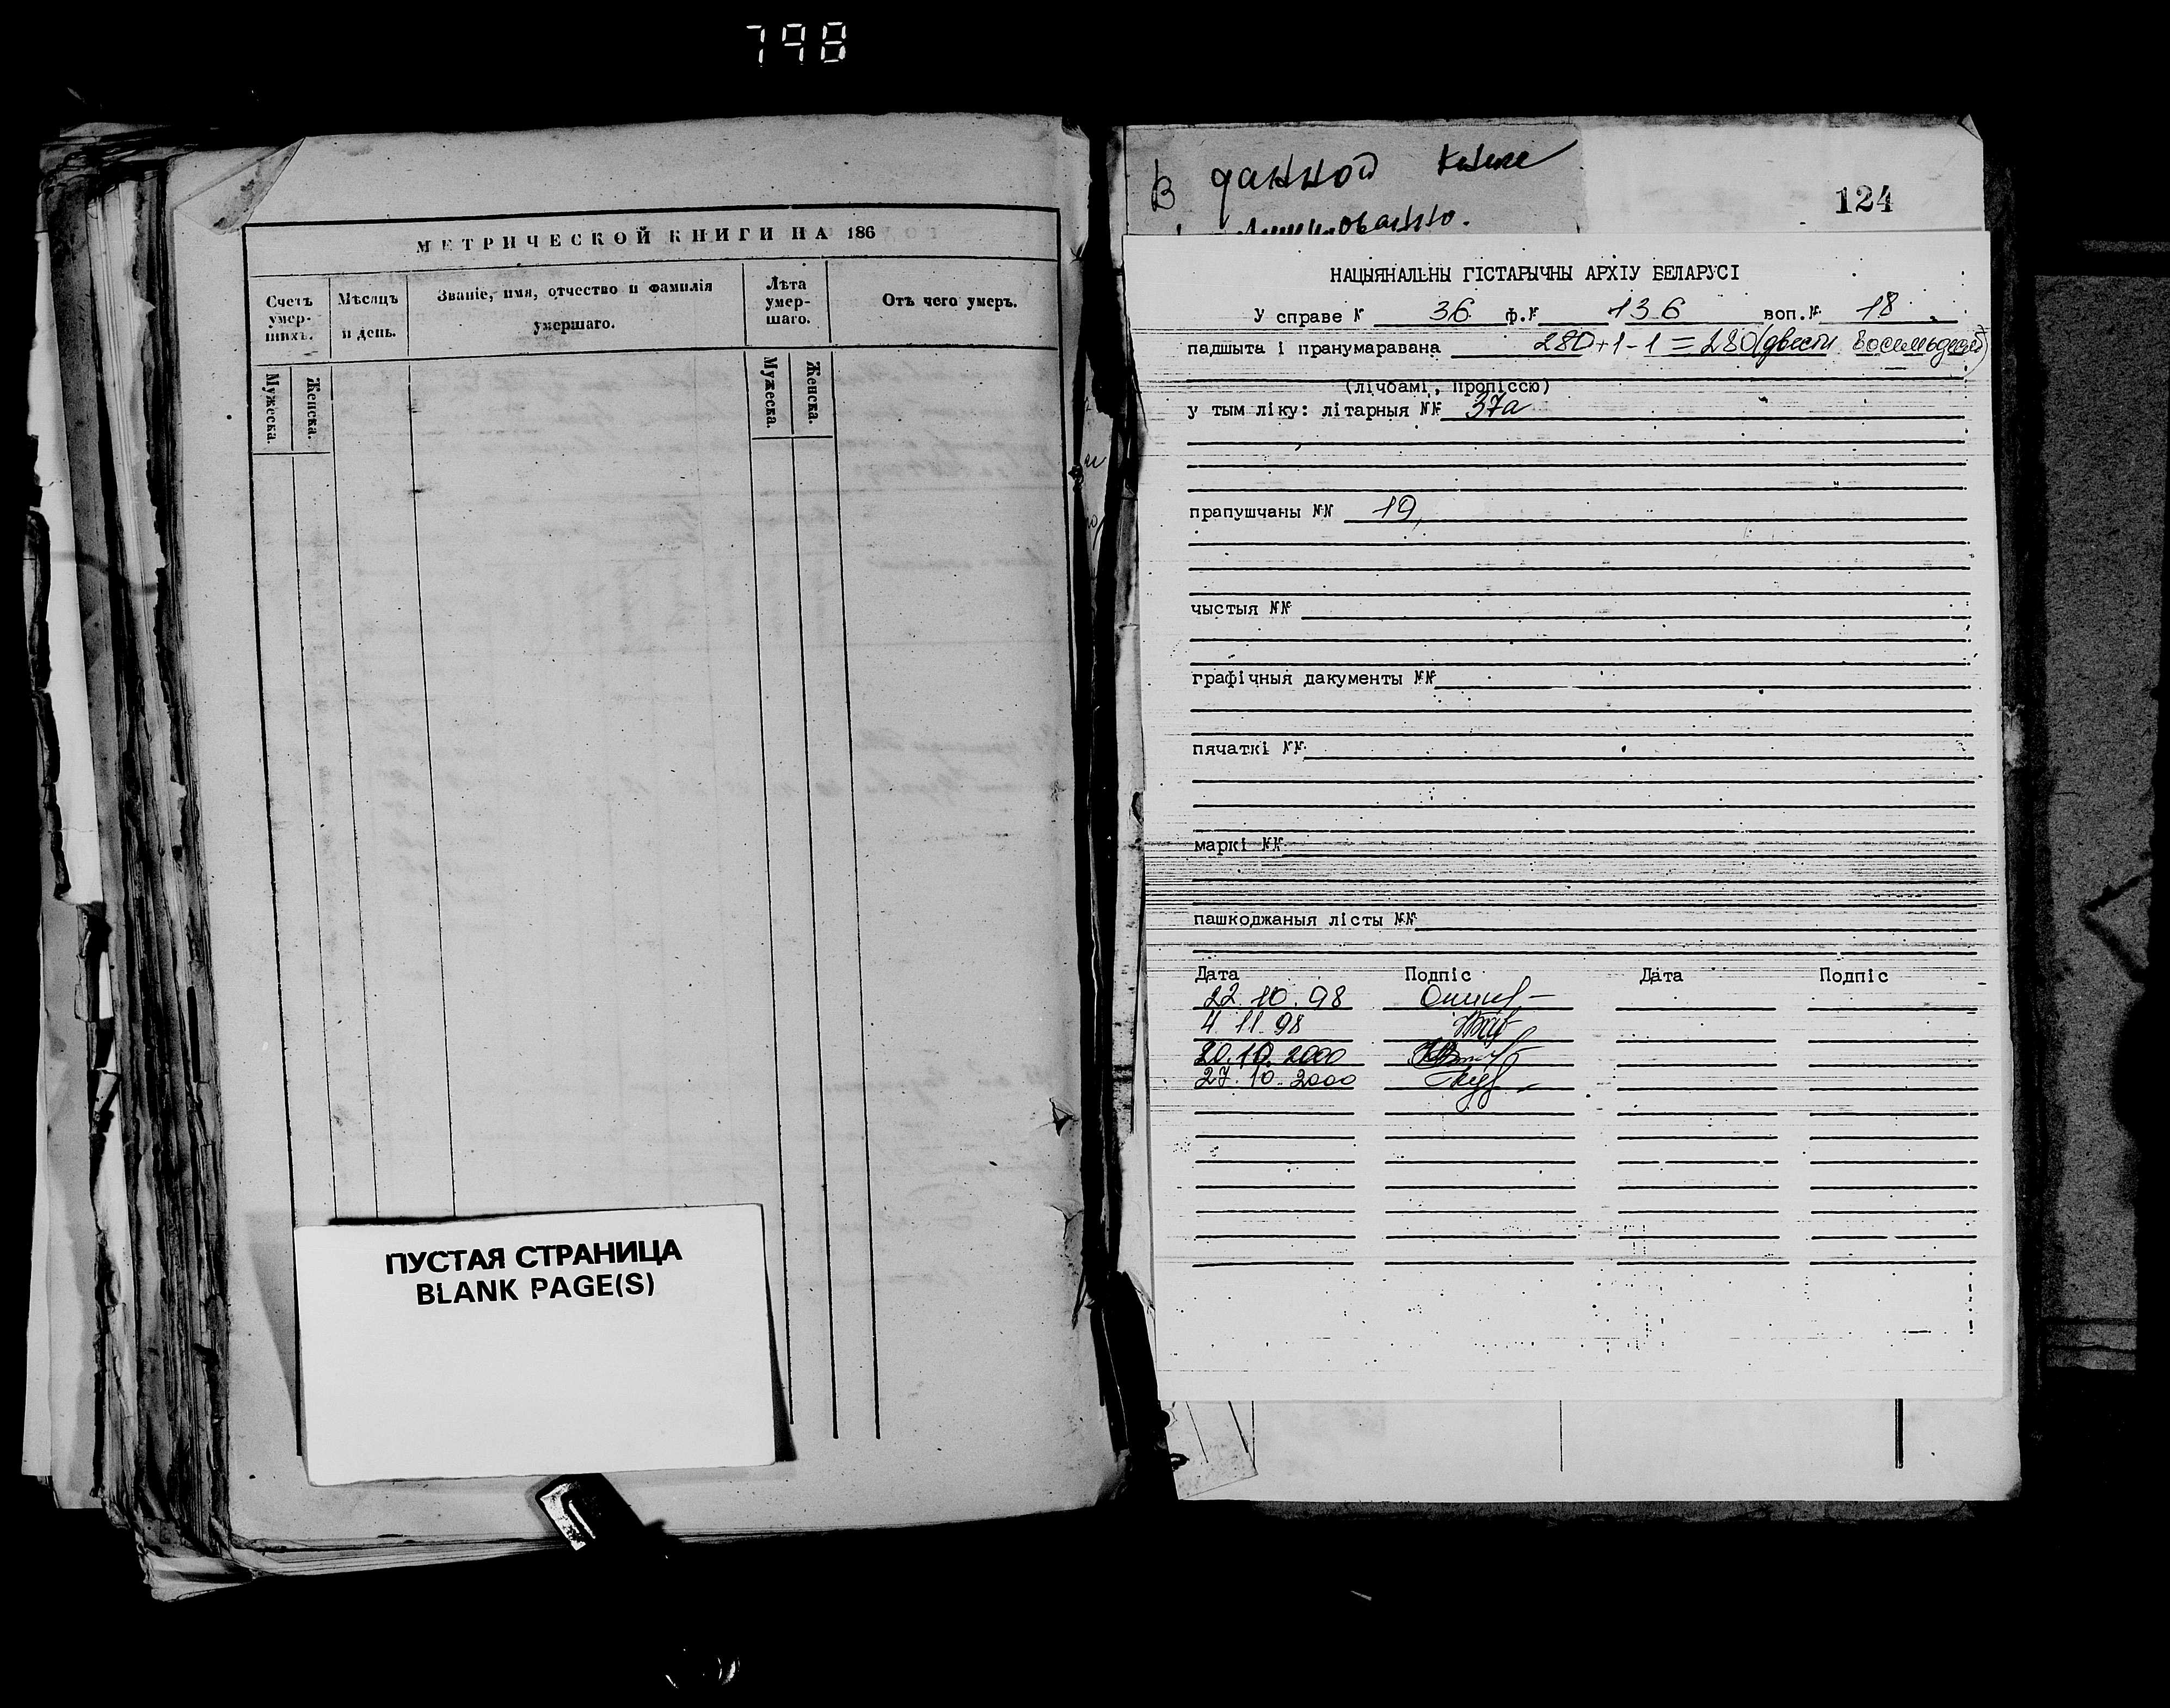 798
МЕТРИЧЕСКОЙ КНИГИ НА 186
Счетъ умер-шихъ.
Мѣсяцъ и день.
Званіе, имя, отчество и фамилія умершаго.
Лѣта умер-шаго.
Отъ чего умеръ.
Мужеска.
Женска.
Мужеска.
Женска.
ПУСТАЯ СТРАНИЦА
BLANK PAGE(S)
В данной книге
124
НАЦЫЯНАЛЬНЫ ГІСТАРЫЧНЫ АРХІУ БЕЛАРУСІ
У справе № 36 ф.№ 136 воп.№ 18
падшыта і пранумаравана 280+1-1=280(двести восемьдесят)
(лічбамі, пропіссю)
у тым ліку: літарныя №№ 37а
прапушчаны №№ 19,
чыстыя №№
графічныя дакументы №№
пячаткі №№
маркі №№
пашкоджаныя лісты №№
Дата Подпіс Дата Подпіс
22.10.98
4.11.98
20.10.2000
27.10.2000